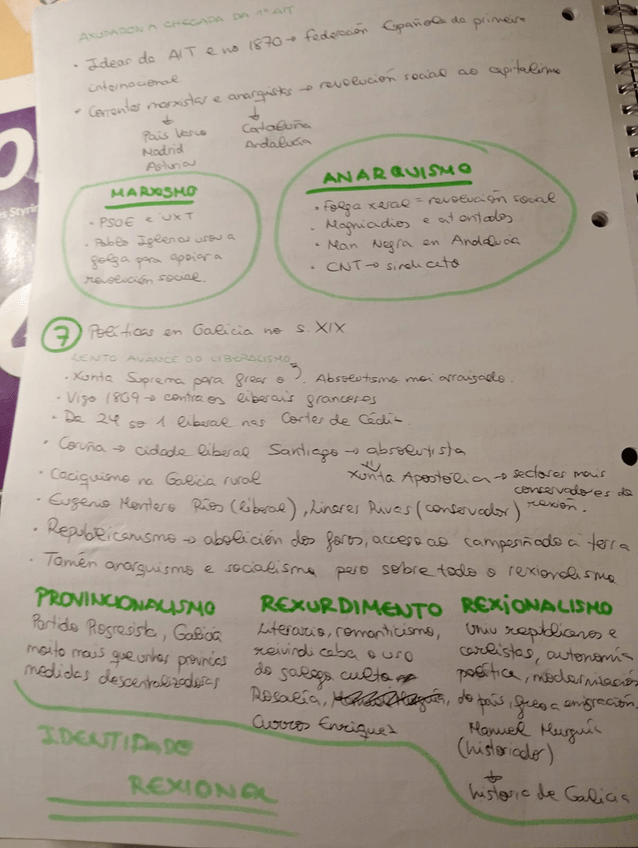 AXUDARON A CHEGADA DA 1ª AIT
• Ideas da AIT e no 1870 → Federación Española da primeira
internacional
• Correntes marxistas e anarquistas → revolución social ao capitalismo
País Vasco
Madrid
Asturias
Cataluña
Andalucía
MARXISMO
• PSOE e UXT
• Pablo Iglesias usou a
folga para apoiar a
revolución social.
ANARQUISMO
• Folga xeral = revolución social
• Magnicidios e atentados
• Man Negra en Andalucía
• CNT → sindicato
7 Políticas en Galicia no s. XIX
LENTO AVANCE DO LIBERALISMO
• Xunta Suprema para frear o Absolutismo moi arraigado.
• Vigo 1809 → contra os liberais franceses
• De 24 so 1 liberal nas Cortes de Cádiz
• Coruña → cidade liberal Santiago → absolutista
• Caciquismo na Galicia rural
Xunta Apostólica → sectores mais
conservadores da
rexión.
• Eugenio Montero Ríos (liberal), Linares Rivas (conservador)
• Republicanismo → abolición dos foros, acceso ao campesiñado á terra
• Tamén anarquismo e socialismo pero sobre todo o rexionalismo
PROVINCIONALISMO
Partido Progresista, Galicia
moito mais que unhas provincias
medidas descentralizadoras
REXURDIMENTO
Literario, romanticismo,
reivindicaba o uso
do galego culto
Rosalía,
Curros Enriquez
REXIONALISMO
Uniu republicanos e
carlistas, autonomía
política, modernización
do país, freo a emigración.
Manuel Murguía
(historiador)
historia de Galicia
IDENTIDADE
REXIONAL